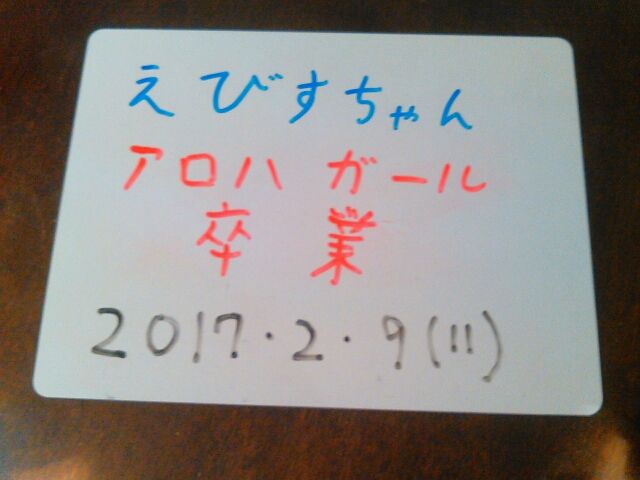 えびすちゃん
アロハ ガール
卒業
2017・2・9(!!)